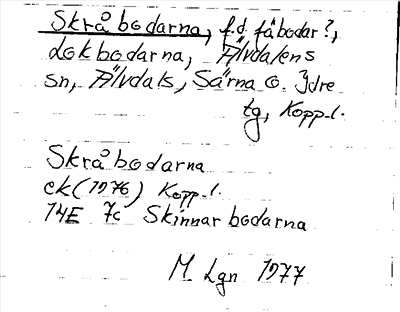 Skråbodarna, f.d. fäbodar?,
Lokbodarna, Älvdalens
sn, Älvdals, Särna o. Idre
tg, Kopp.l.
Skråbodarna
ek (1976) Kopp.l.
14E 7c Skinnarbodarna
M. Lgn 1977